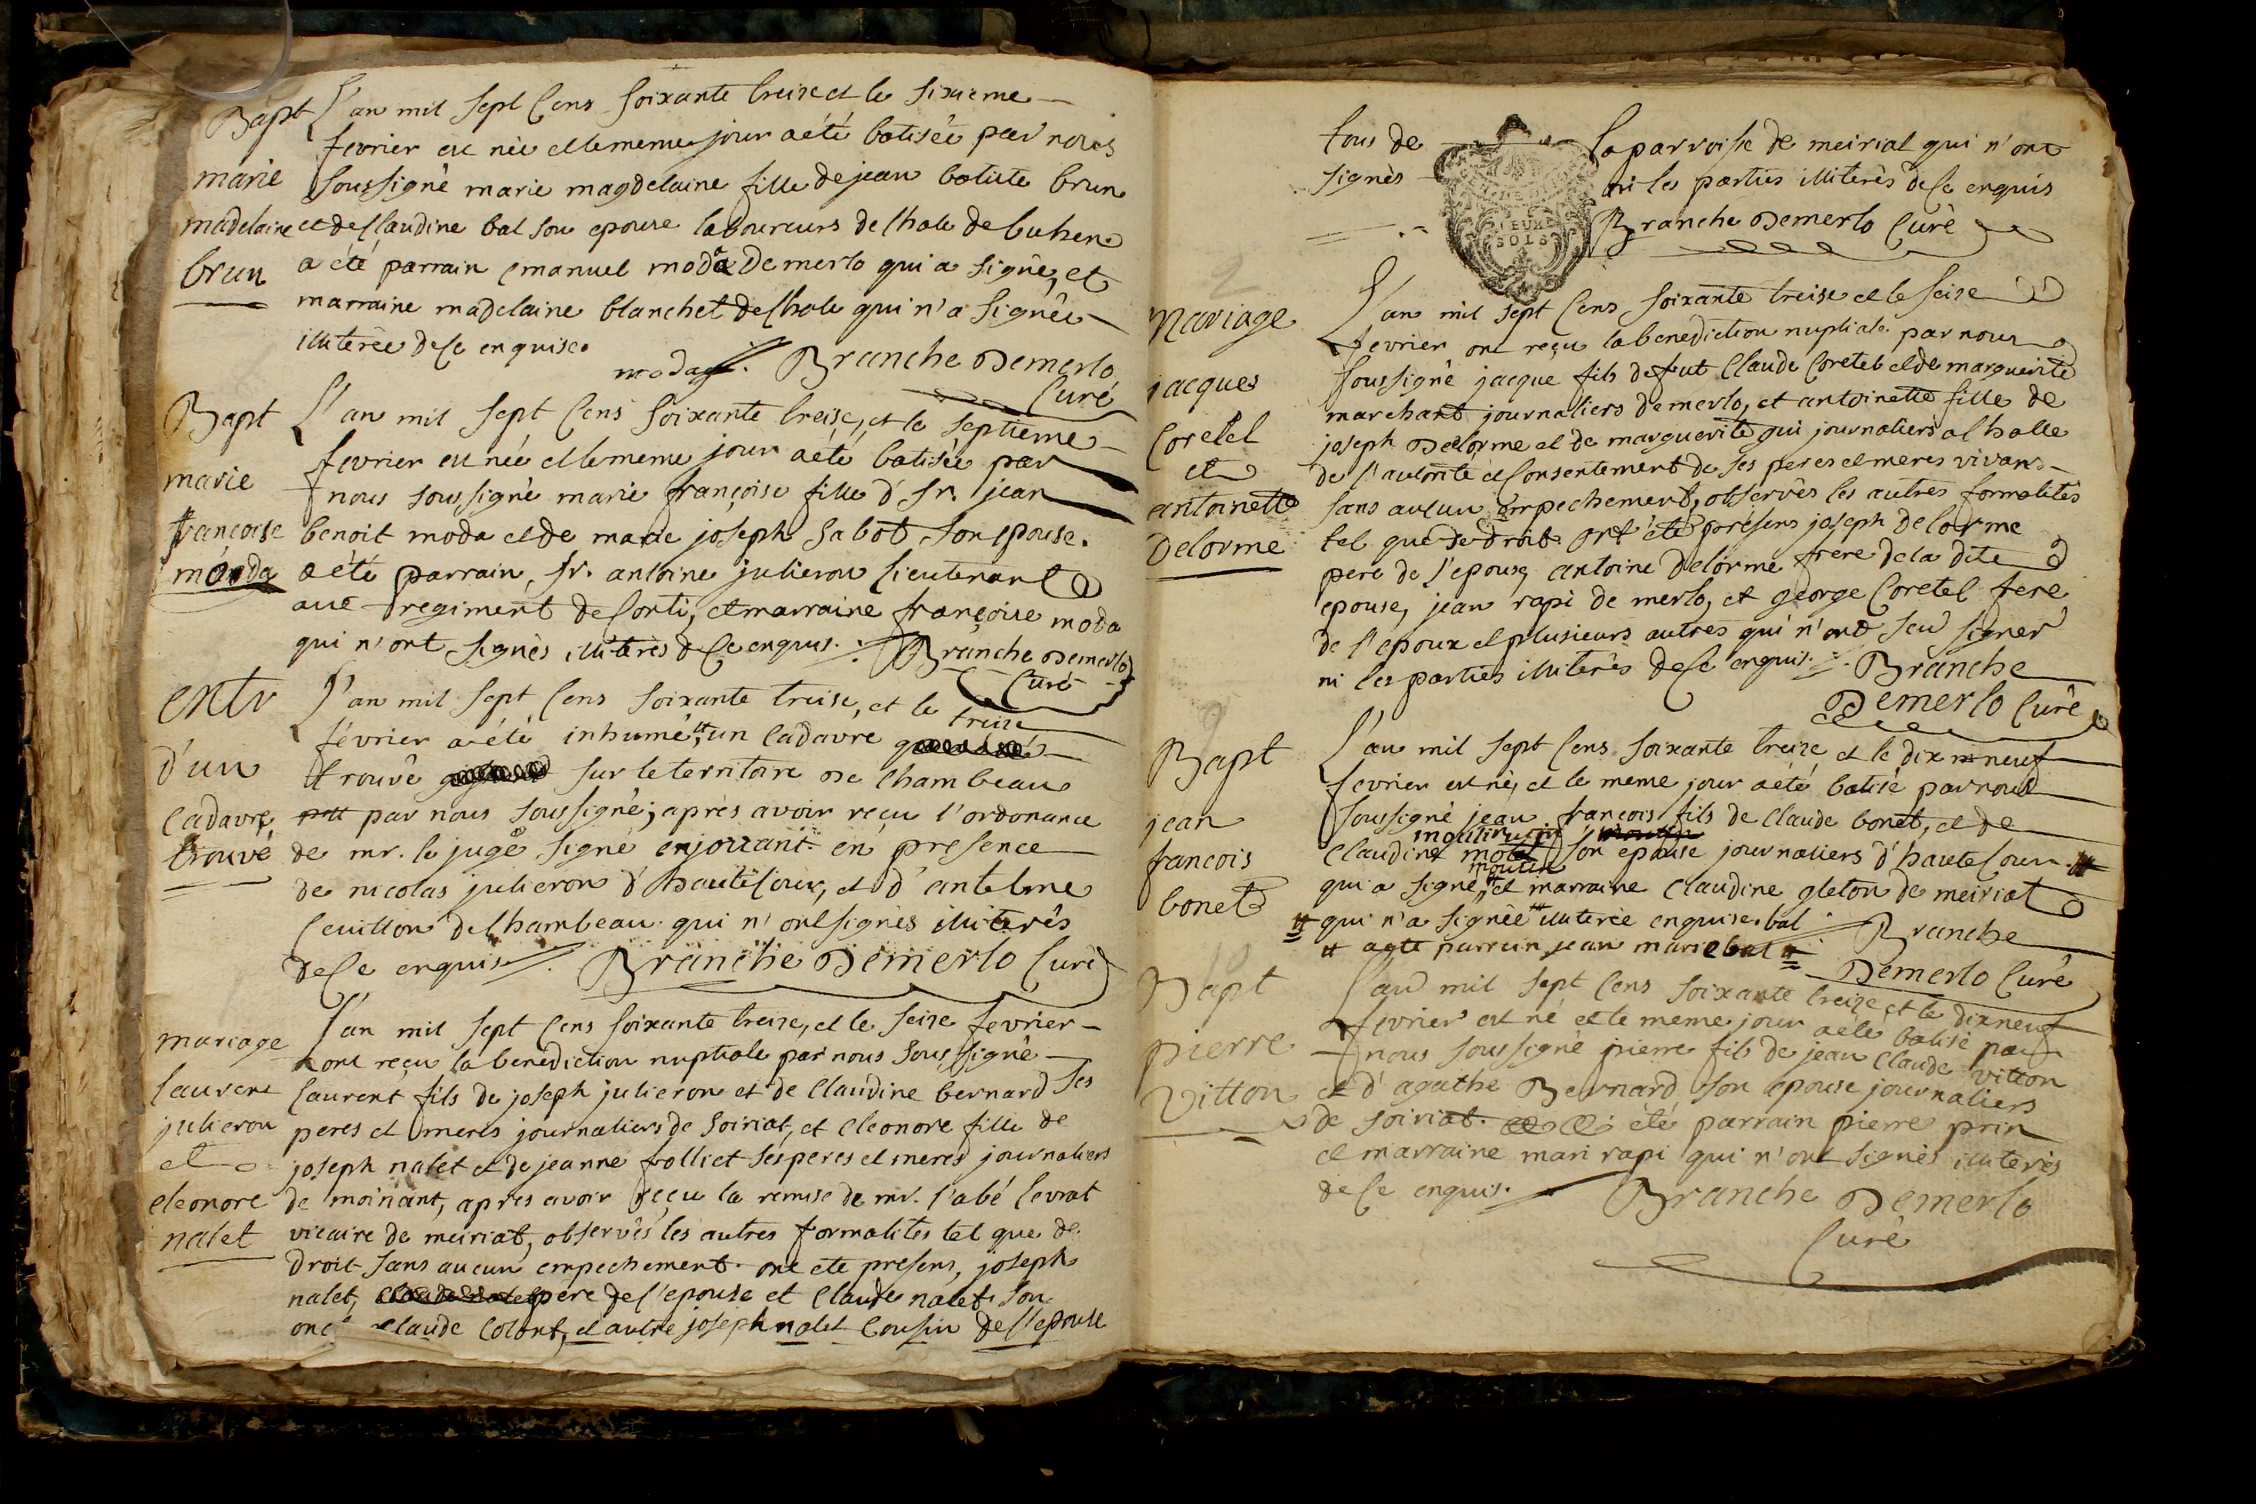 Bapt L'an mil sept cens soixante treise et le sixieme
fevrier est née et le meme jour a été batisée par nous
marie soussigné marie magdelaine fille de jean batiste brun
madelaine et de Claudine bal son epouse laboureurs de lhale de buhen
brun a été parrain emanuel moda Demerlo qui a signé, et
marraine madelaine blanchet de lhale qui n'a signée
illiterée de ce enquise.
moda Branche Demerlo
Curé
Bapt L'an mil sept cens soixante treise, et le septieme
fevrier est née et le meme jour a été batisée par
marie nous soussigné marie françoise fille d' sr. jean
françoise benoit moda et de marie joseph sabot son epouse.
monda a été parrain, sr. antoine julieron lieutenant
au regiment de Conti, et marraine françoise moda
qui n'ont signés illiterés de ce enquis. Branche Demerlo
Curé
entr L'an mil sept cens soixante treise, et le treise
fevrier a été inhumé, un cadavre
d'un trouvé sur le territoire de Chambeau
cadavre par nous soussigné; après avoir reçu l'ordonance
trouvé de mr. le juge signé enjorrant en presence
de nicolas julieron d'hauteCour, et d'antelme
Cuitton de Chambeau qui n'ont signés illiterés
de ce enquis. Branche Demerlo Curé
mariage L'an mil sept cens soixante treise, et le seise fevrier
ont reçu la benediction nuptiale par nous soussigné
laurent laurent fils de joseph julieron et de Claudine bernard ses
julieron peres et meres journaliers de Soiriat, et eleonore fille de
et joseph nalet et de jeanne folliet ses peres et meres journaliers
eleonore de moinant, après avoir reçu la remise de mr. l'abé levrat
nalet vicaire de meiriat, observés les autres formalités tel que de
droit sans aucun empechement. ont eté presens, joseph
nalet, pere de l'epouse et Claude nalet son
onc Claude Colont, et autre joseph nalet cousin de l'epouse
tous de la parroisse de meirial qui n'ont
signés ni les parties illiterés de ce enquis
DEUX
SOLS
Branche Demerlo Curé
2
Mariage L'an mil sept cens soixante treise et le seise
fevrier ont reçu la benediction nuptiale par nous
jacques soussigné jacque fils de fut Claude Coretel et de marguerite
marchant journaliers Demerlo, et antoinette fille de
Coretel joseph Delorme et de marguerite gui journaliers a lhalle
et de l'autorité et consentement de ses peres et meres vivans
antoinette sans aucun empechement, observés les autres formalités
Delorme tel que de droit ont été presens joseph delorme
pere de l'epouse, antoine Delorme frere de la dite
epouse, jean rapi de merlo, et george Coretel frere
de l'epoux et plusieurs autres qui n'ont seu signer
ni les parties illiterés de ce enquis. Branche
Demerlo Curé
9
Bapt L'an mil sept cens soixante treise et le dix neuf
fevrier est né, et le meme jour a été batisé par nous
jean soussigné jean françois fils de Claude bonet, et de
moulin
francois Claudine son epouse journaliers d'hauteCour.
moulin
bonet qui a signé, et marraine Claudine gleton de meiriat
qui n'a signée illiterée enquise. bal
a eté parrain jean marie bal Branche
Demerlo Curé
10
Bapt L'an mil sept cens soixante treise et le dix neuf
fevrier est né et le meme jour a été batisé par
pierre nous soussigné pierre fils de jean Claude vitton
Vitton et d'agathe Bernard son epouse journaliers
de soiriat. été parrain pierre prin
et marraine mari rapi qui n'ont signés illiterés
de ce enquis. Branche Demerlo
Curé